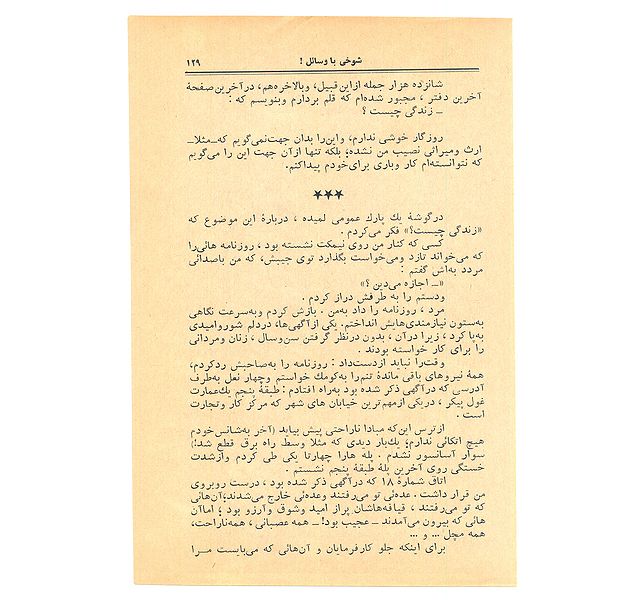 شوخی با وسائل ! ۱۲۹
شانزده هزار جمله ازاین قبیل، وبالاخره‌هم، درآخرین صفحهٔ
آخرین دفتر ، مجبور شده‌ام که قلم بردارم وبنویسم که :
ـ زندگی چیست ؟
روزگار خوشی ندارم، واین‌را بدان جهت‌نمی‌گویم که‌ـ‌مثلا‌ـ
ارث ومیراثی نصیب من نشده؛ بلکه تنها ازآن جهت این را می‌گویم
که نتوانسته‌ام کار وباری برای‌خودم پیداکنم.
★★★
درگوشهٔ یك پارك عمومی لمیده ، دربارهٔ این موضوع که
«زندگی چیست؟» فکر می‌کردم .
کسی که کنار من روی نیمکت نشسته بود ، روزنامه هائی‌را
که می‌خواند تازد ومی‌خواست بگذارد توی جیبش، که من باصدائی
مردد به‌اش گفتم :
«ـ اجازه می‌دین ؟»
ودستم را به طرفش دراز کردم .
مرد ، روزنامه را داد به‌من . بازش کردم وبه‌سرعت نگاهی
به‌ستون نیازمندی‌هایش انداختم. یکی ازآگهی‌ها، دردلم شوروامیدی
به‌پا کرد ، زیرا درآن ، بدون درنظر گرفتن سن‌وسال ، زنان ومردانی
را برای کار خواسته بودند .
وقت‌را نباید ازدست‌داد : روزنامه را به‌صاحبش ردکردم،
همهٔ نیروهای باقی ماندهٔ تنم‌را به‌کومك خواستم وچهار نعل به‌طرف
آدرسی که درآگهی ذکر شده بود به‌راه افتادم : طبقهٔ پنجم یك‌عمارت
غول پیکر ، دریکی ازمهم‌ترین خیابان های شهر که مرکز کار وتجارت
است .
ازترس این‌که مبادا ناراحتی پیش بیاید (آخر به‌شانس‌خودم
هیچ اتکائی ندارم؛ یك‌بار دیدی که مثلا وسط راه برق قطع شد!)
سوار آسانسور نشدم . پله هارا چهارتا یکی طی کردم وازشدت
خستگی روی آخرین پلهٔ طبقهٔ پنجم نشستم .
اتاق شمارهٔ ۱۸ که درآگهی ذکر شده بود ، درست روبروی
من قرار داشت . عده‌ئی تو می‌رفتند وعده‌ئی خارج می‌شدند؛آن‌هائی
که تو می‌رفتند ، قیافه‌هاشان پراز امید وشوق وآرزو بود ؛ اماآن
هائی که بیرون می‌آمدند ـ عجیب بود!ـ همه عصبانی ، همه‌ناراحت،
همه مچل ... و ...
برای اینکه جلو کارفرمایان و آن‌هائی که می‌بایست مـرا